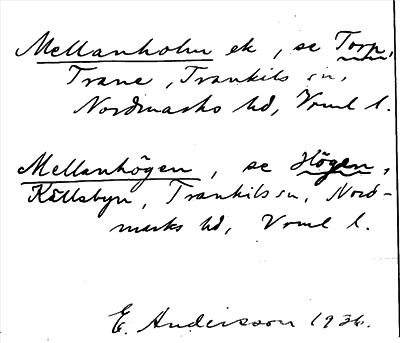 Mellanholm ek, se Torp,
Trane, Trankils sn,
Nordmarks hd, Vrml l.
Mellanhögen, se Högen,
Källsbyn, Trankils sn, Nord-
marks hd, Vrml l.
E. Andersson 1936.